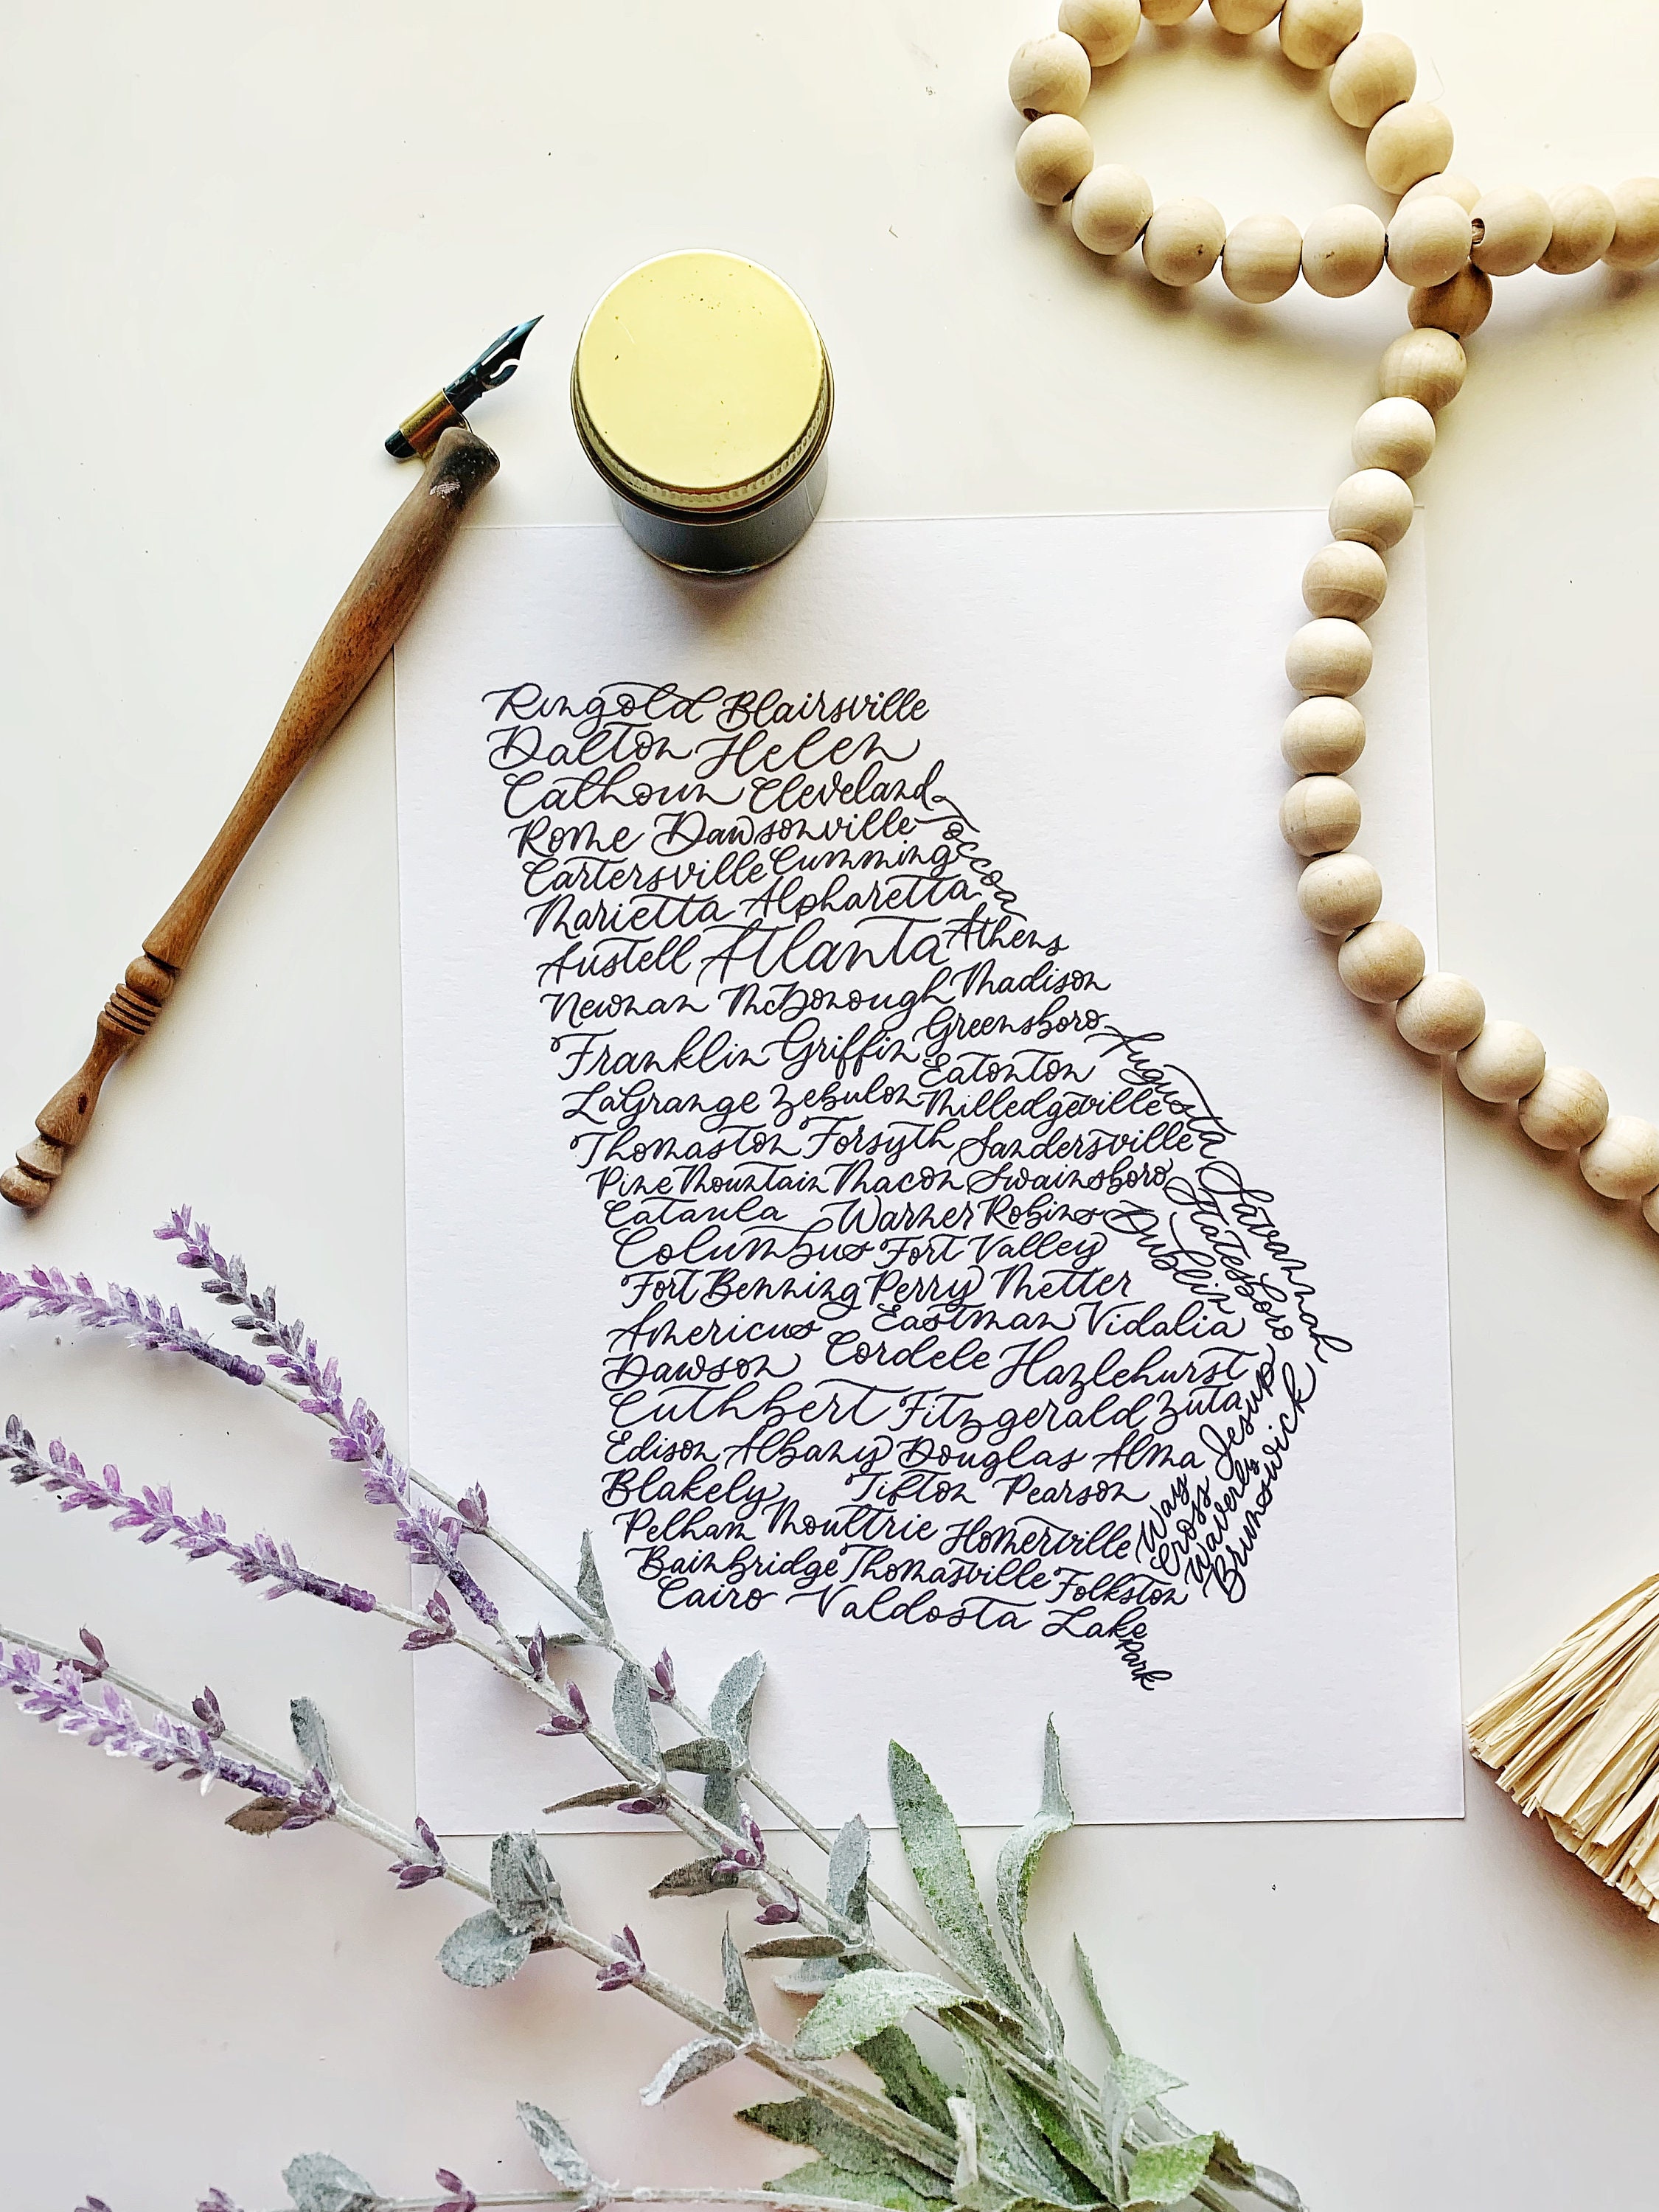 Ringold Blairsville
Dalton Helen
Calhoun Cleveland
Rome Dawsonville Toccoa
Cartersville Cumming
Marietta Alpharetta
Austell Atlanta Athens
Newnan McDonough Madison
Franklin Griffin Greensboro
Eatonton Augusta
LaGrange Zebulon Milledgeville
Thomaston Forsyth Sandersville
Pine Mountain Macon Swainsboro Savannah
Cataula Warner Robins Dublin Statesboro
Columbus Fort Valley
Fort Benning Perry Metter
Americus Eastman Vidalia
Dawson Cordele Hazlehurst
Cuthbert Fitzgerald Zuta Jesup Brunswick
Edison Albany Douglas Alma
Blakely Tifton Pearson Way Cross Waverly
Pelham Moultrie Homerville
Bainbridge Thomasville Folkston
Cairo Valdosta Lake
Park